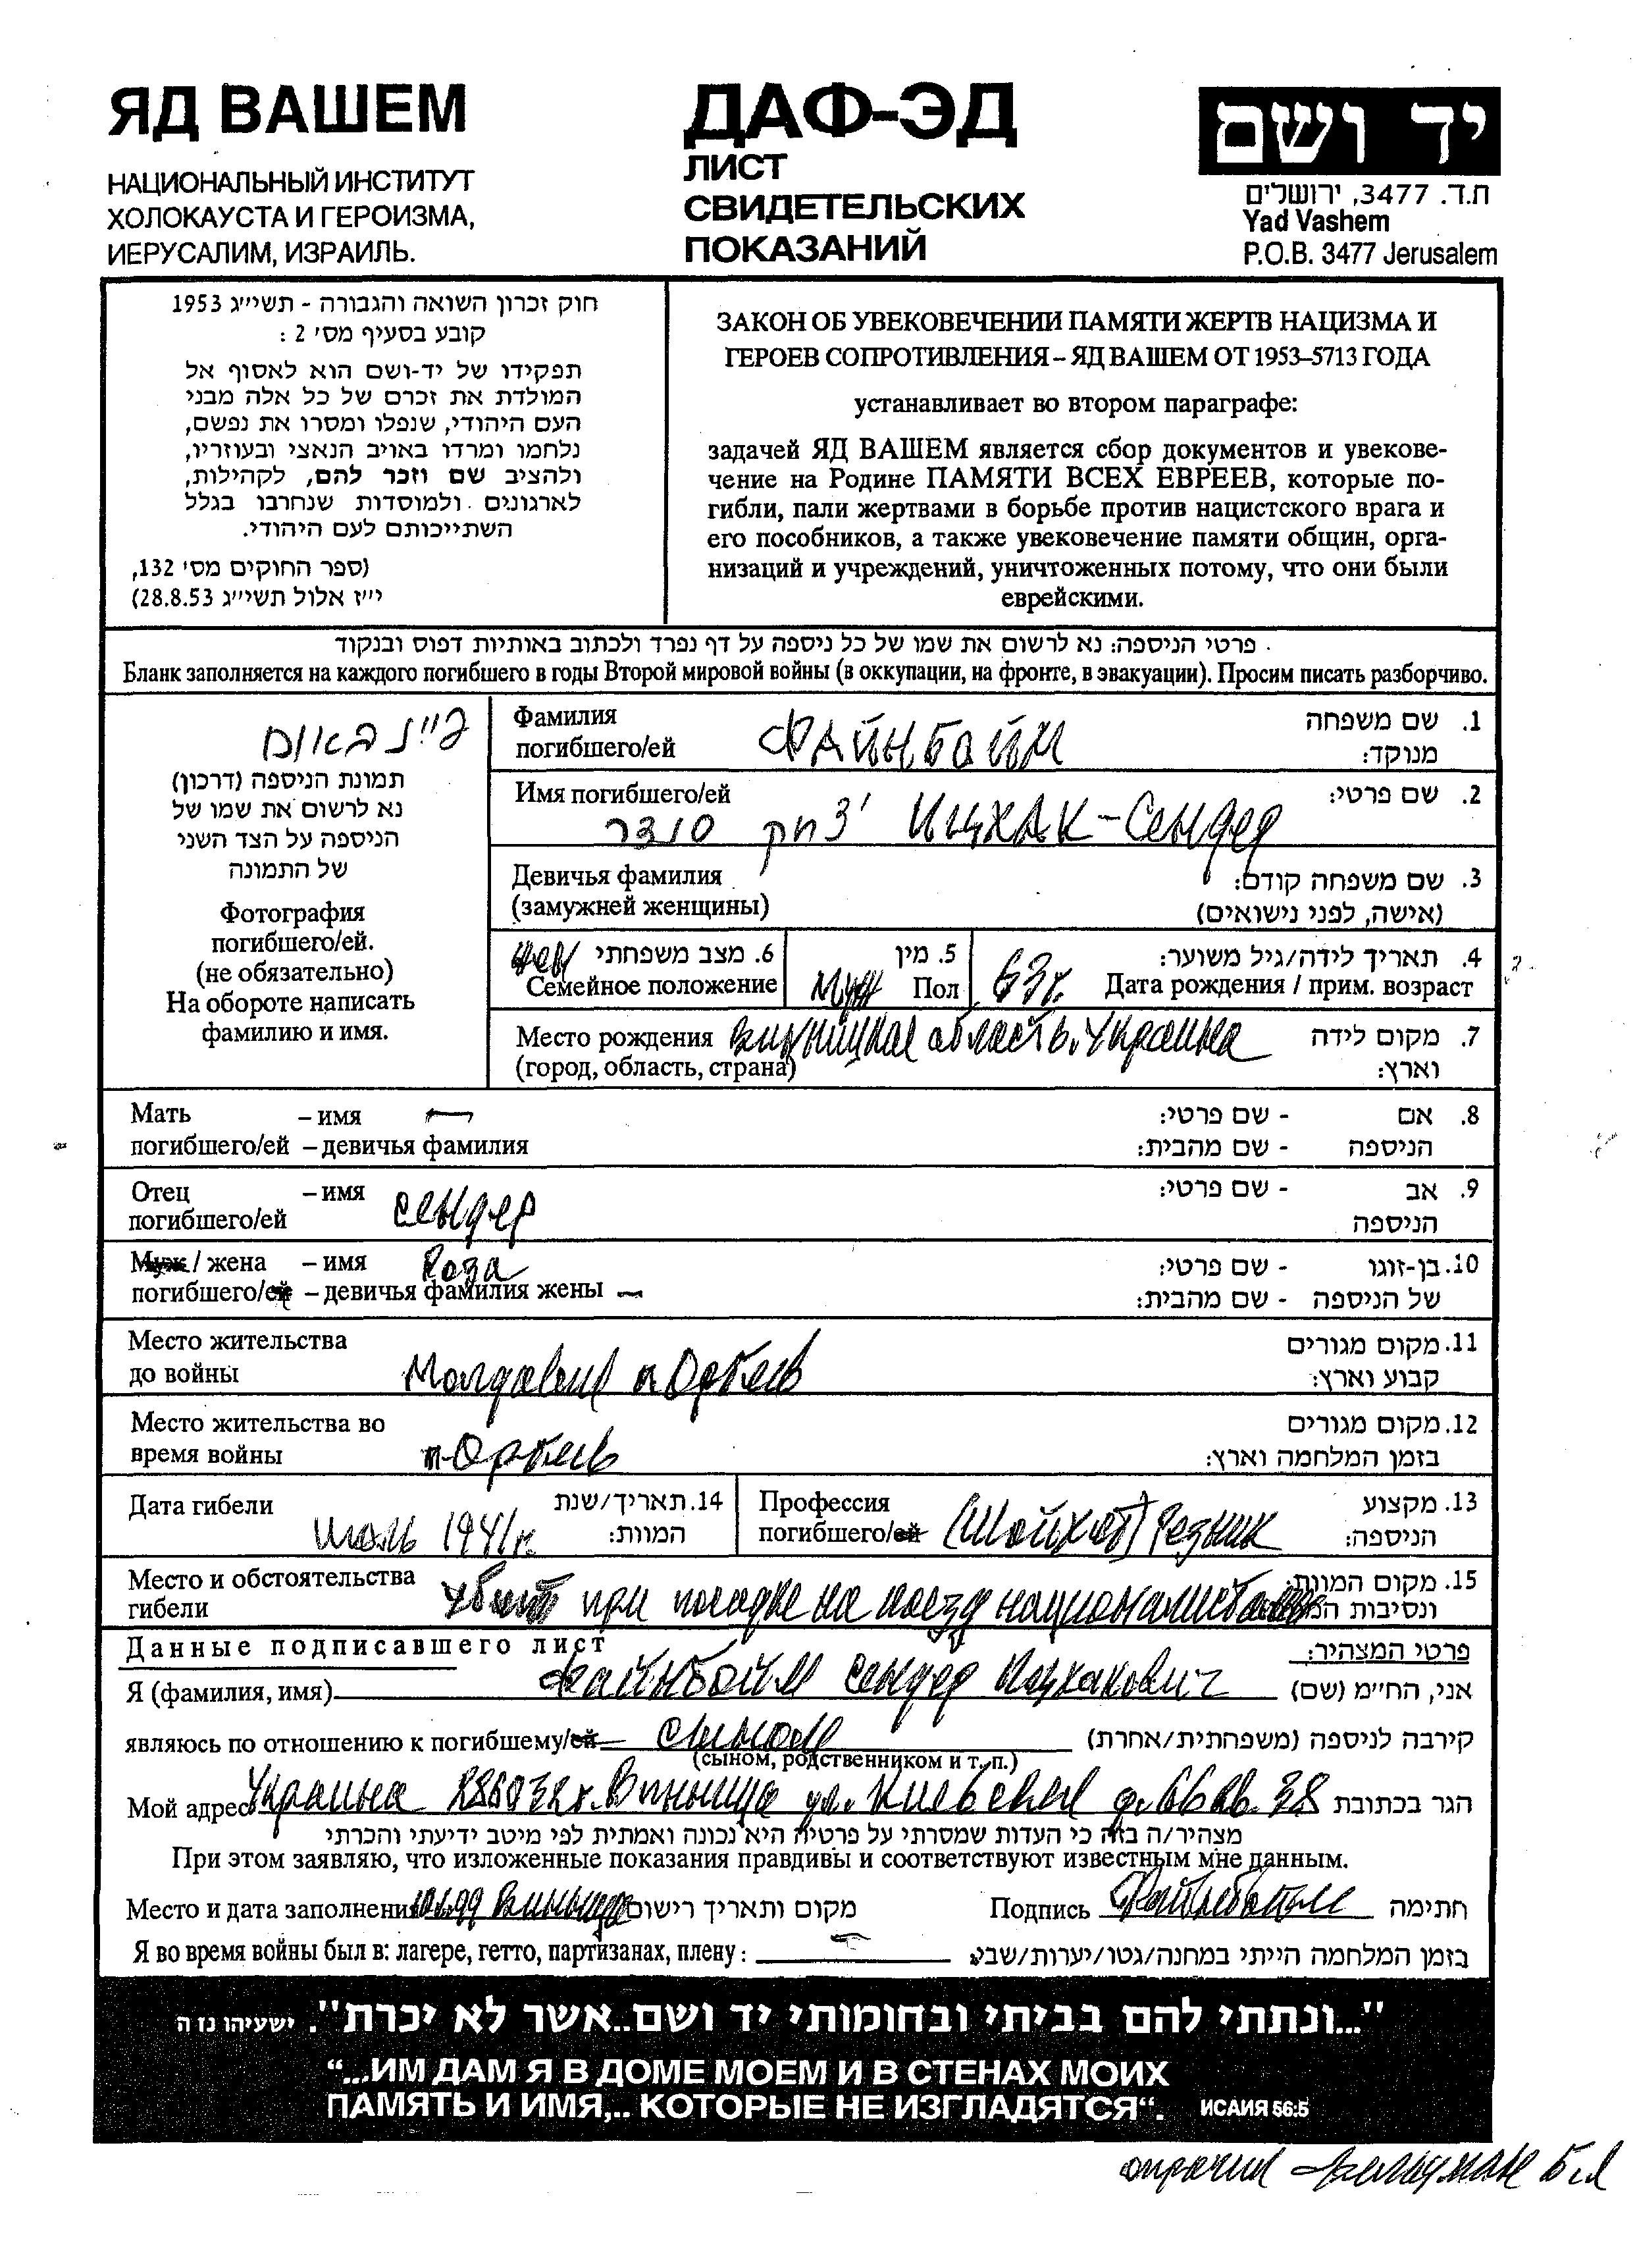 ЯД ВАШЕМ
НАЦИОНАЛЬНЫЙ ИНСТИТУТ
ХОЛОКАУСТА И ГЕРОИЗМА,
ИЕРУСАЛИМ, ИЗРАИЛЬ.
ДАФ-ЭД
ЛИСТ
СВИДЕТЕЛЬСКИХ
ПОКАЗАНИЙ
יד ושם
ת.ד. 3477, ירושלים
Yad Vashem
P.O.B. 3477 Jerusalem
חוק זכרון השואה והגבורה - תשי״ג 1953
קובע בסעיף מס׳ 2 :
תפקידו של יד-ושם הוא לאסוף אל
המולדת את זכרם של כל אלה מבני
העם היהודי, שנפלו ומסרו את נפשם,
נלחמו ומרדו באויב הנאצי ובעוזריו,
ולהציב שם וזכר להם, לקהילות,
לארגונים ולמוסדות שנחרבו בגלל
השתייכותם לעם היהודי.
(ספר החוקים מס׳ 132,
י״ז אלול תשי״ג 28.8.53)
ЗАКОН ОБ УВЕКОВЕЧЕНИИ ПАМЯТИ ЖЕРТВ НАЦИЗМА И
ГЕРОЕВ СОПРОТИВЛЕНИЯ – ЯД ВАШЕМ ОТ 1953–5713 ГОДА
устанавливает во втором параграфе:
задачей ЯД ВАШЕМ является сбор документов и увекове-
чение на Родине ПАМЯТИ ВСЕХ ЕВРЕЕВ, которые по-
гибли, пали жертвами в борьбе против нацистского врага и
его пособников, а также увековечение памяти общин, орга-
низаций и учреждений, уничтоженных потому, что они были
еврейскими.
פרטי הניספה: נא לרשום את שמו של כל ניספה על דף נפרד ולכתוב באותיות דפוס ובנקוד
Бланк заполняется на каждого погибшего в годы Второй мировой войны (в оккупации, на фронте, в эвакуации). Просим писать разборчиво.
פיינבאום
תמונת הניספה (דרכון)
נא לרשום את שמו של
הניספה על הצד השני
של התמונה
Фотография
погибшего/ей.
(не обязательно)
На обороте написать
фамилию и имя.
Фамилия ФАЙНБОЙМ 1. שם משפחה
погибшего/ей מנוקד:
Имя погибшего/ей 2. שם פרטי:
יצחק סנדר Ицхак-Сендер
Девичья фамилия 3. שם משפחה קודם:
(замужней женщины) (אישה, לפני נישואים)
жен 6. מצב משפחתי 5. מין 4. תאריך לידה/גיל משוער:
Семейное положение Муж Пол 63 г. Дата рождения / прим. возраст
Место рождения Винницкая область. Украина 7. מקום לידה
(город, область, страна) וארץ:
Мать – имя — - שם פרטי: 8. אם
погибшего/ей – девичья фамилия - שם מהבית: הניספה
Отец – имя Сендер - שם פרטי: 9. אב
погибшего/ей הניספה
Муж / жена – имя Роза - שם פרטי: 10. בן-זוגו
погибшего/ей – девичья фамилия жены — - שם מהבית: של הניספה
Место жительства 11. מקום מגורים
до войны Молдавия п. Орбеев קבוע וארץ:
Место жительства во 12. מקום מגורים
время войны п. Орбеев בזמן המלחמה וארץ:
Дата гибели июль 1941 г. 14. תאריך/שנת המוות:
Профессия 13. מקצוע
погибшего/ей (Шойхет) Резник הניספה:
Место и обстоятельства 15. מקום המוות
гибели Убит при посадке на поезд националистами ונסיבות
Данные подписавшего лист פרטי המצהיר:
Я (фамилия, имя) Файнбойм Сендер Ицхакович אני, הח״מ (שם)
являюсь по отношению к погибшему/ей сыном קירבה לניספה (משפחתית/אחרת)
(сыном, родственником и т. п.)
Мой адрес Украина 286032 г. Винница ул. Киевская д. 66 кв. 38 הגר בכתובת
מצהיר/ה בזה כי העדות שמסרתי על פרטיה היא נכונה ואמתית לפי מיטב ידיעתי והכרתי
При этом заявляю, что изложенные показания правдивы и соответствуют известным мне данным.
Место и дата заполнения Винница מקום ותאריך רישום Подпись Файнбойм חתימה
Я во время войны был в: лагере, гетто, партизанах, плену : — בזמן המלחמה הייתי במחנה/גטו/יערות/שבי
"...ונתתי להם בביתי ובחומותי יד ושם..אשר לא יכרת". ישעיהו נז ה
“...ИМ ДАМ Я В ДОМЕ МОЕМ И В СТЕНАХ МОИХ
ПАМЯТЬ И ИМЯ,.. КОТОРЫЕ НЕ ИЗГЛАДЯТСЯ“. ИСАИЯ 56:5